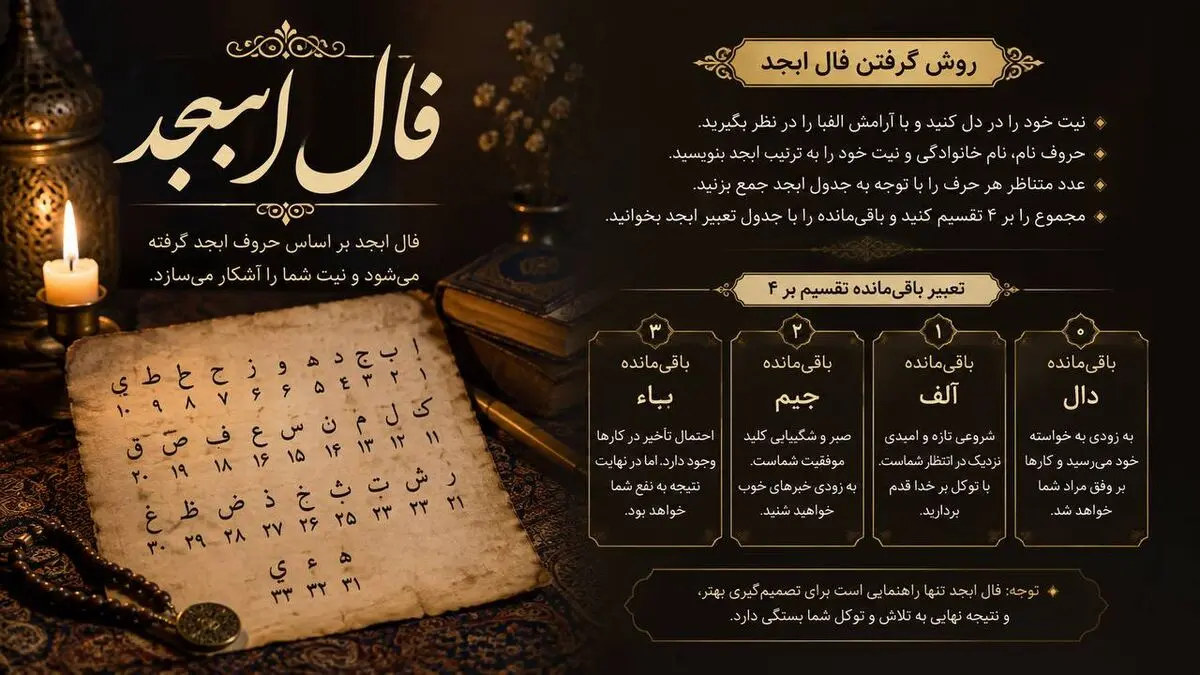 فال ابجد
فال ابجد بر اساس حروف ابجد گرفته
می‌شود و نیت شما را آشکار می‌سازد.
ا ب ج د ه و ز ح ط ي
۱ ۲ ۳ ۴ ۵ ۶ ۶ ۷ ۸ ۹ ۱۰
ک ل م ن س ع ف ص ق
۱۱ ۱۲ ۱۳ ۱۴ ۱۵ ۱۶ ۱۸ ۱۹ ۲۰
ر ش ت ث خ ذ ض ظ غ
۲۱ ۲۳ ۲۳ ۲۵ ۲۶ ۲۷ ۲۸ ۲۹ ۳۰
ه ء ي
۳۱ ۳۲ ۳۳
روش گرفتن فال ابجد
نیت خود را در دل کنید و با آرامش الفبا را در نظر بگیرید.
حروف نام، نام خانوادگی و نیت خود را به ترتیب ابجد بنویسید.
عدد متناظر هر حرف را با توجه به جدول ابجد جمع بزنید.
مجموع را بر ۴ تقسیم کنید و باقی‌مانده را با جدول تعبیر ابجد بخوانید.
تعبیر باقی‌مانده تقسیم بر ۴
۰
باقی‌مانده
دال
به زودی به خواسته
خود می‌رسید و کارها
بر وفق مراد شما
خواهد شد.
۱
باقی‌مانده
آلف
شروعی تازه و امیدی
نزدیک در انتظار شماست.
با توکل بر خدا قدم
بردارید.
۲
باقی‌مانده
جیم
صبر و شگیبایی کلید
موفقیت شماست.
به زودی خبرهای خوب
خواهید شنید.
۳
باقی‌مانده
بباء
احتمال تأخیر در کارها
وجود دارد. اما در نهایت
نتیجه به نفع شما
خواهد بود.
توجه: فال ابجد تنها راهنمایی است برای تصمیم‌گیری بهتر،
و نتیجه نهایی به تلاش و توکل شما بستگی دارد.